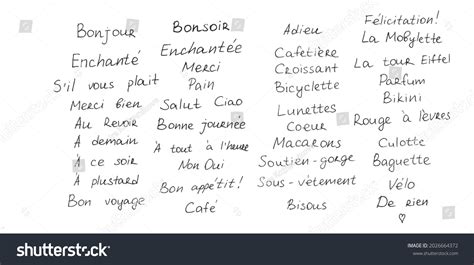 Bonjour
Enchanté
S'il vous plait
Merci bien
Au Revoir
A demain
A ce soir
A plustard
Bon voyage
Bonsoir
Enchantée
Merci
Pain
Salut Ciao
Bonne journée
A tout à l'heure
Non Oui
Bon appétit!
Café
Adieu
Cafetière
Croissant
Bicyclette
Lunettes
Coeur
Macarons
Soutien-gorge
Sous-vêtement
Bisous
Félicitation!
La Mobylette
La tour Eiffel
Parfum
Bikini
Rouge à lèvres
Culotte
Baguette
Vélo
De rien
shutterstock.com · 2026664372